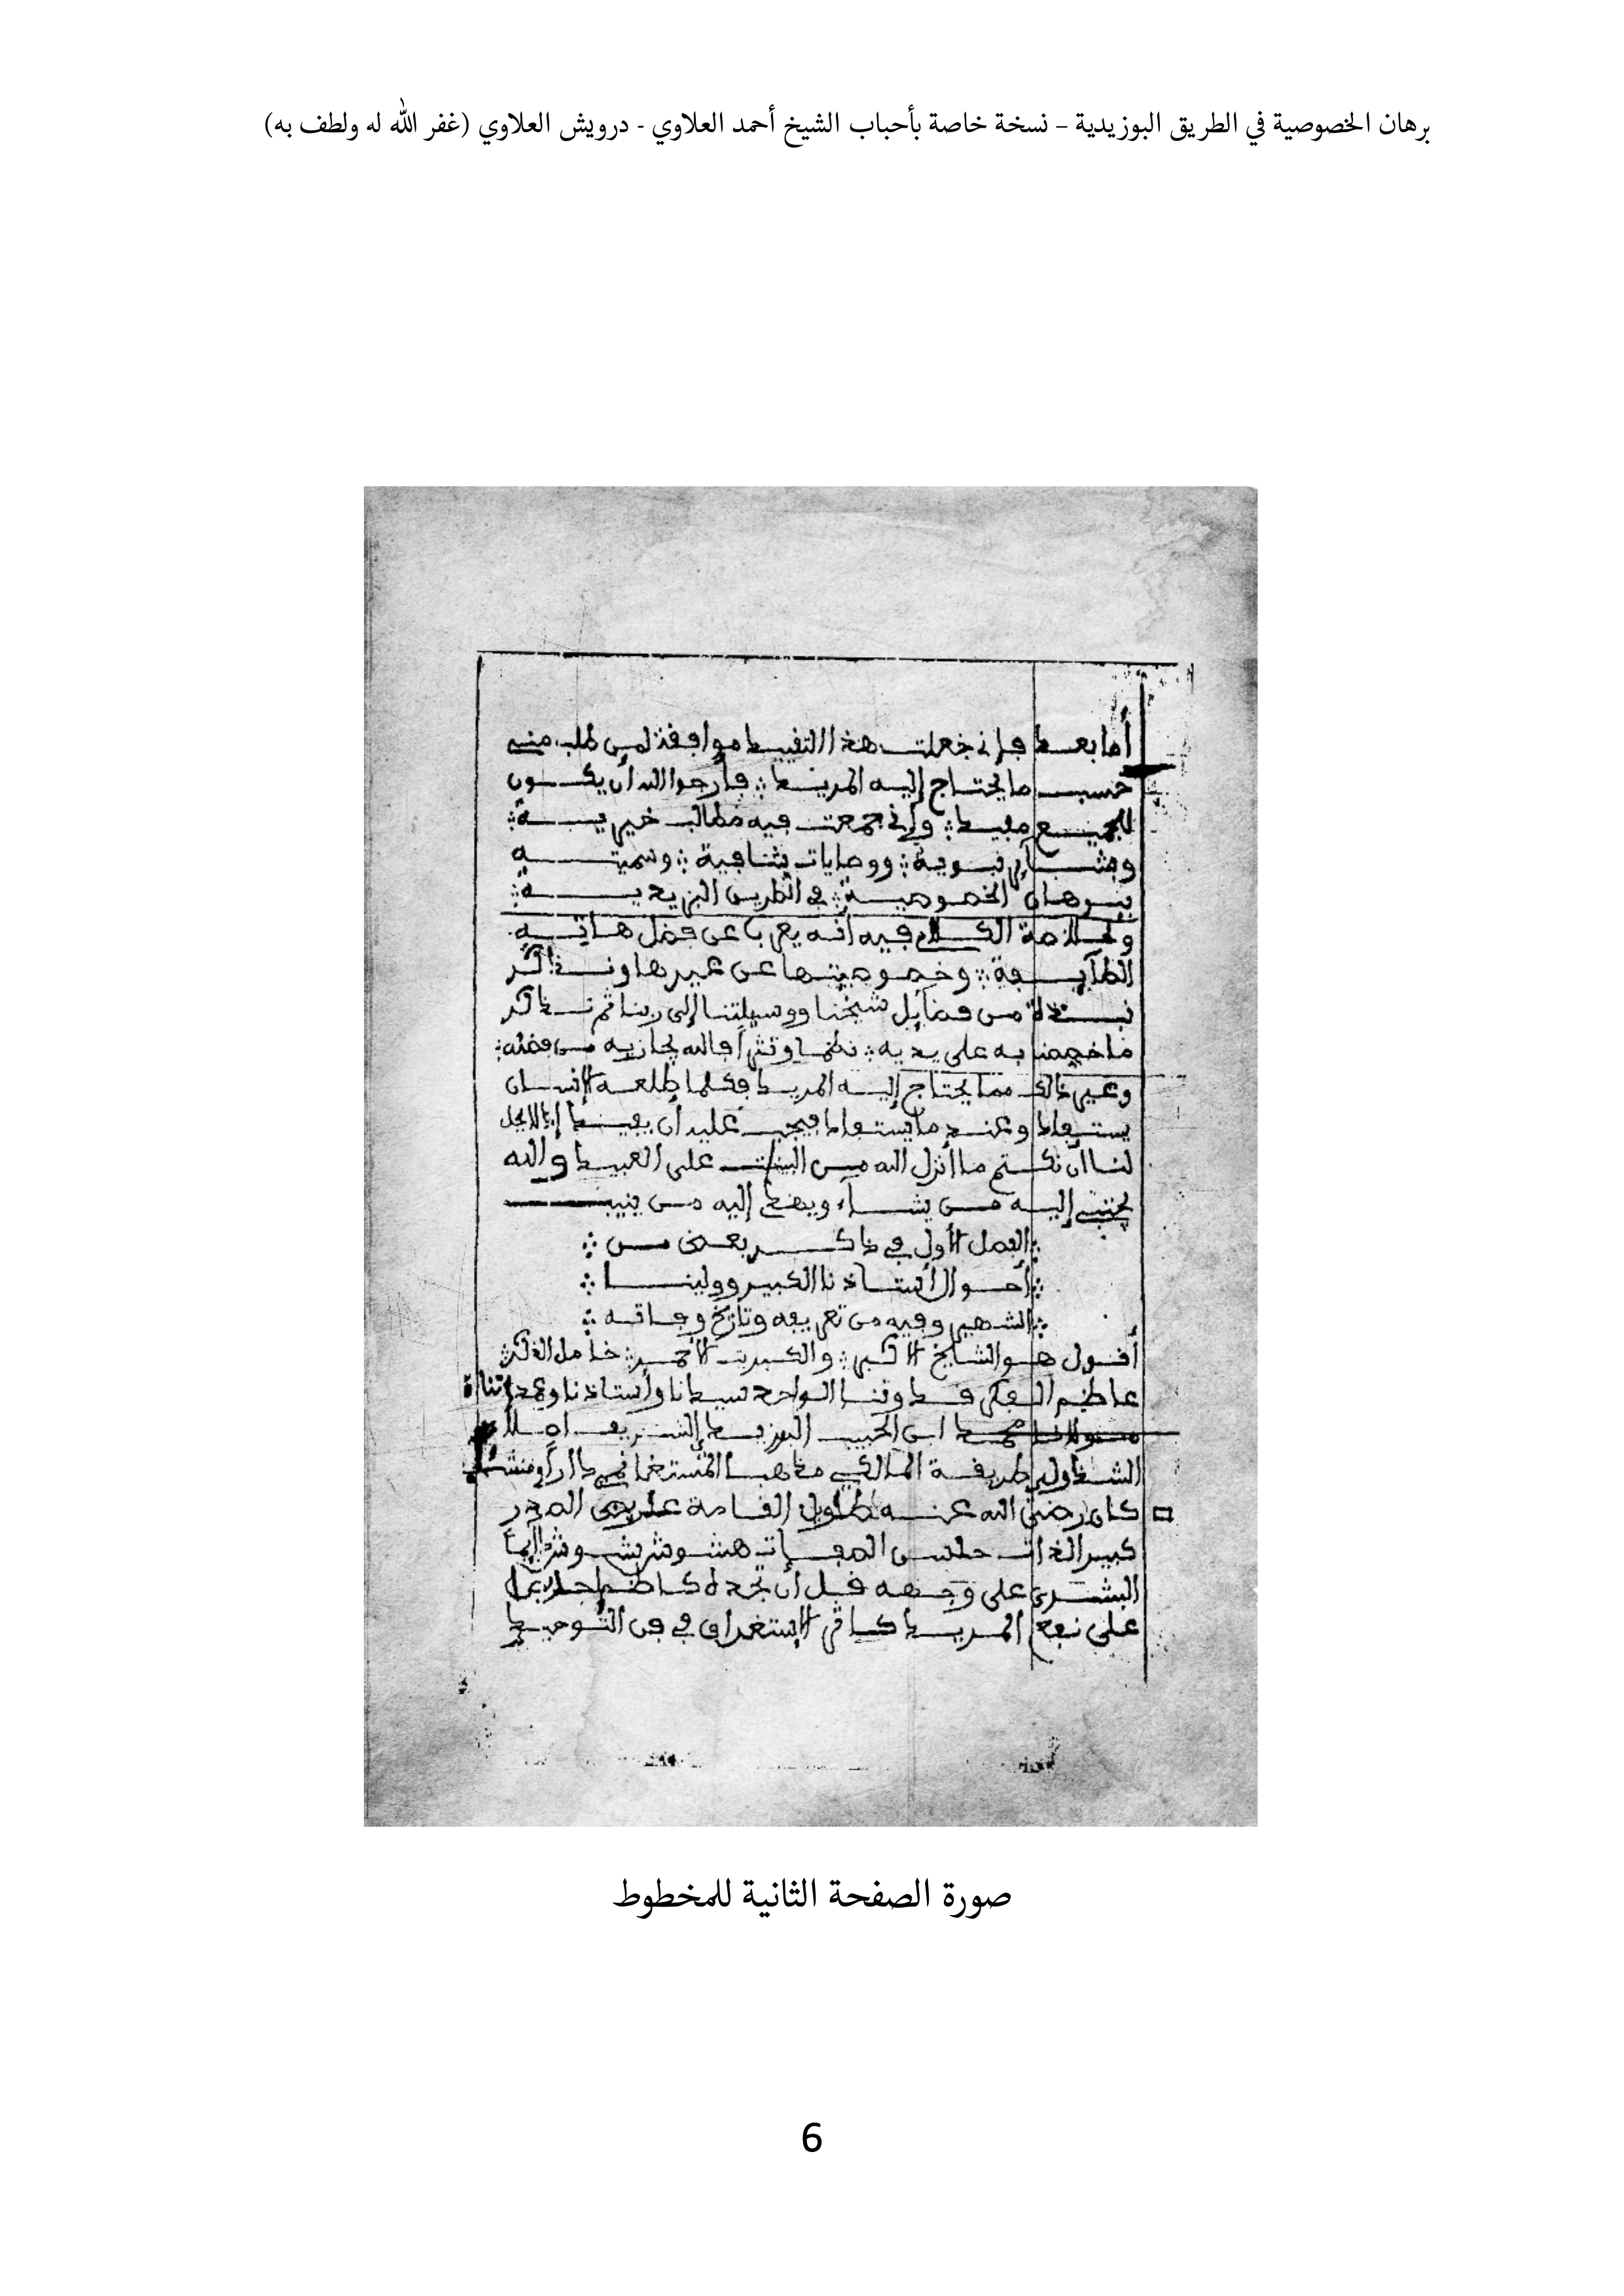 برهان الخصوصية في الطريق البوزيدية – نسخة خاصة بأحباب الشيخ أحمد العلاوي - درويش العلاوي (غفر الله له ولطف به)
أما بعد فإني جعلت هذا التقييد موافقة لمن طلب مني
حسب ما يحتاج إليه المريد؞ فأرجوا الله أن يكون
للجميع مفيد؞ وإني جمعت فيه مطالب
نبوية؞ ووصايات شافية؞ وسميته
ببرهان الخصوصية؞ في الطريق
وخلاصة الكلام فيه أنه يعرب عن فضل هاته
الطآيفة؞ وخصوصيتها عن غيرها ونذاكر
نبذة من فضآيل شيخنا ووسيلتنا إلى ربنا ثم نذاكر
به على يديه؞ نظما ونثرا فالله يجازيه من فضله؞
وغير ذالك مما يحتاج إليه المريد فكلما طلعه الإنسان
يستفاد وعند ما يستفاد فيجب عليه أن يفيد
لنا أن نكتم ما أنزل الله من على العبيد والله
يجتبي إليه من يشآء ويهدي إليه من ينيب
؞الفصل الأول في ذاكر بعض من ؞
؞أحوال أستاذنا الكبير وولينا ؞
؞الشهير وفيه من تعريفه وتاريخ وفاته ؞
أقول هو الشايخ الأكبر؞ والكبريت الأحمر؞ خامل الذكر؞
عاظيم الفكر قدوتنا الواحد سيدنا وأستاذنا وعمدتنا
مولانا محمد ابن الحبيب البوزيدي الشريف اصلا
طريقة المالكي مذاهبا المستغانمي دارا ومنشئا
كان رضي الله عنه طاويل القامة عاريض الصدر
كبير الذات حسن الصفات هشوش بشوش
البشرى على وجهه قبل أن تجده كاظم
على نفع المريد كاثر الاستغراق في فن التوحيد
صورة الصفحة الثانية للمخطوط
6